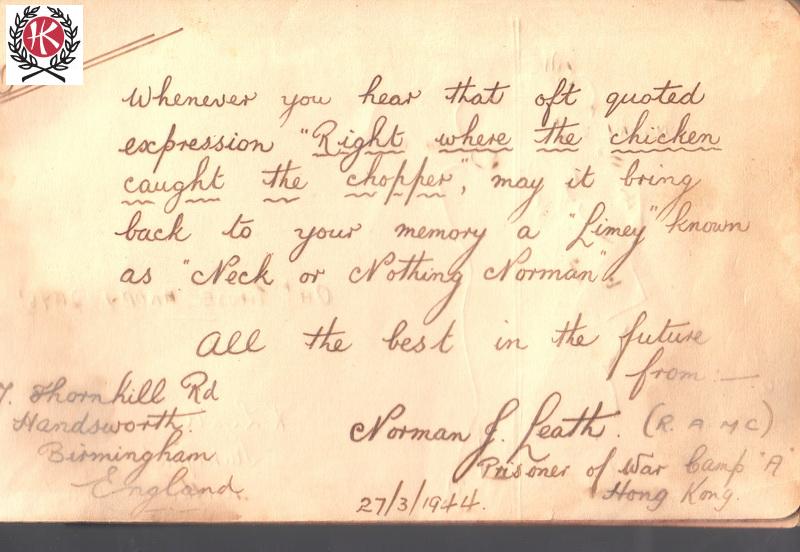 HK
Whenever you hear that oft quoted
expression "Right where the chicken
caught the chopper", may it bring
back to your memory a "Limey" known
as "Neck or Nothing Norman".
All the best in the future
from :—
7. Thornhill Rd
Handsworth.
Birmingham
England.
Norman J. Leath. (R.A.M.C)
Prisoner of War Camp "A"
Hong Kong.
27/3/1944.